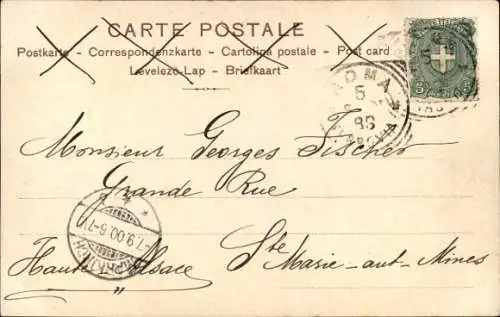 CARTE POSTALE
Postkarte - Correspondenzkarte - Cartolina postale - Post card
Levelezö-Lap - Briefkaart
ROMA
5
Monsieur Georges Fischer
Grande Rue
7.9.00.6-7V
Haute Alsace
"
Ste Marie-aut-Mines